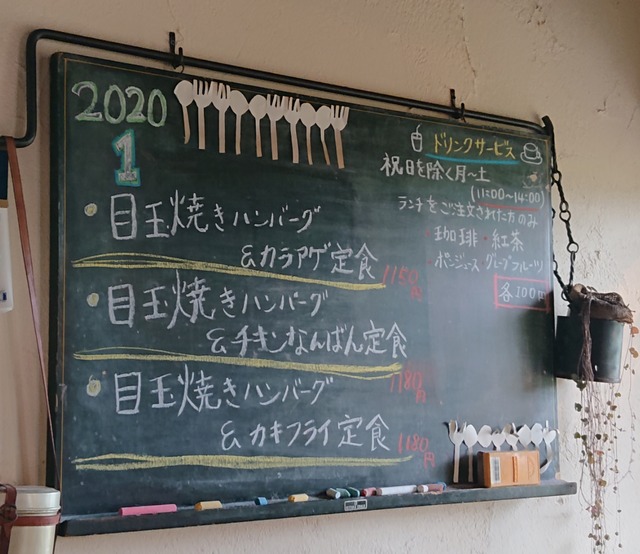 2020
1
・目玉焼きハンバーグ
&カラアゲ定食 1150円
・目玉焼きハンバーグ
&チキンなんばん定食 1180円
・目玉焼きハンバーグ
&カキフライ定食 1180円
ドリンクサービス
祝日を除く月〜土
(11:00〜14:00)
ランチをご注文された方のみ
・珈琲・紅茶
・ポンジュース グレープフルーツ
各100円